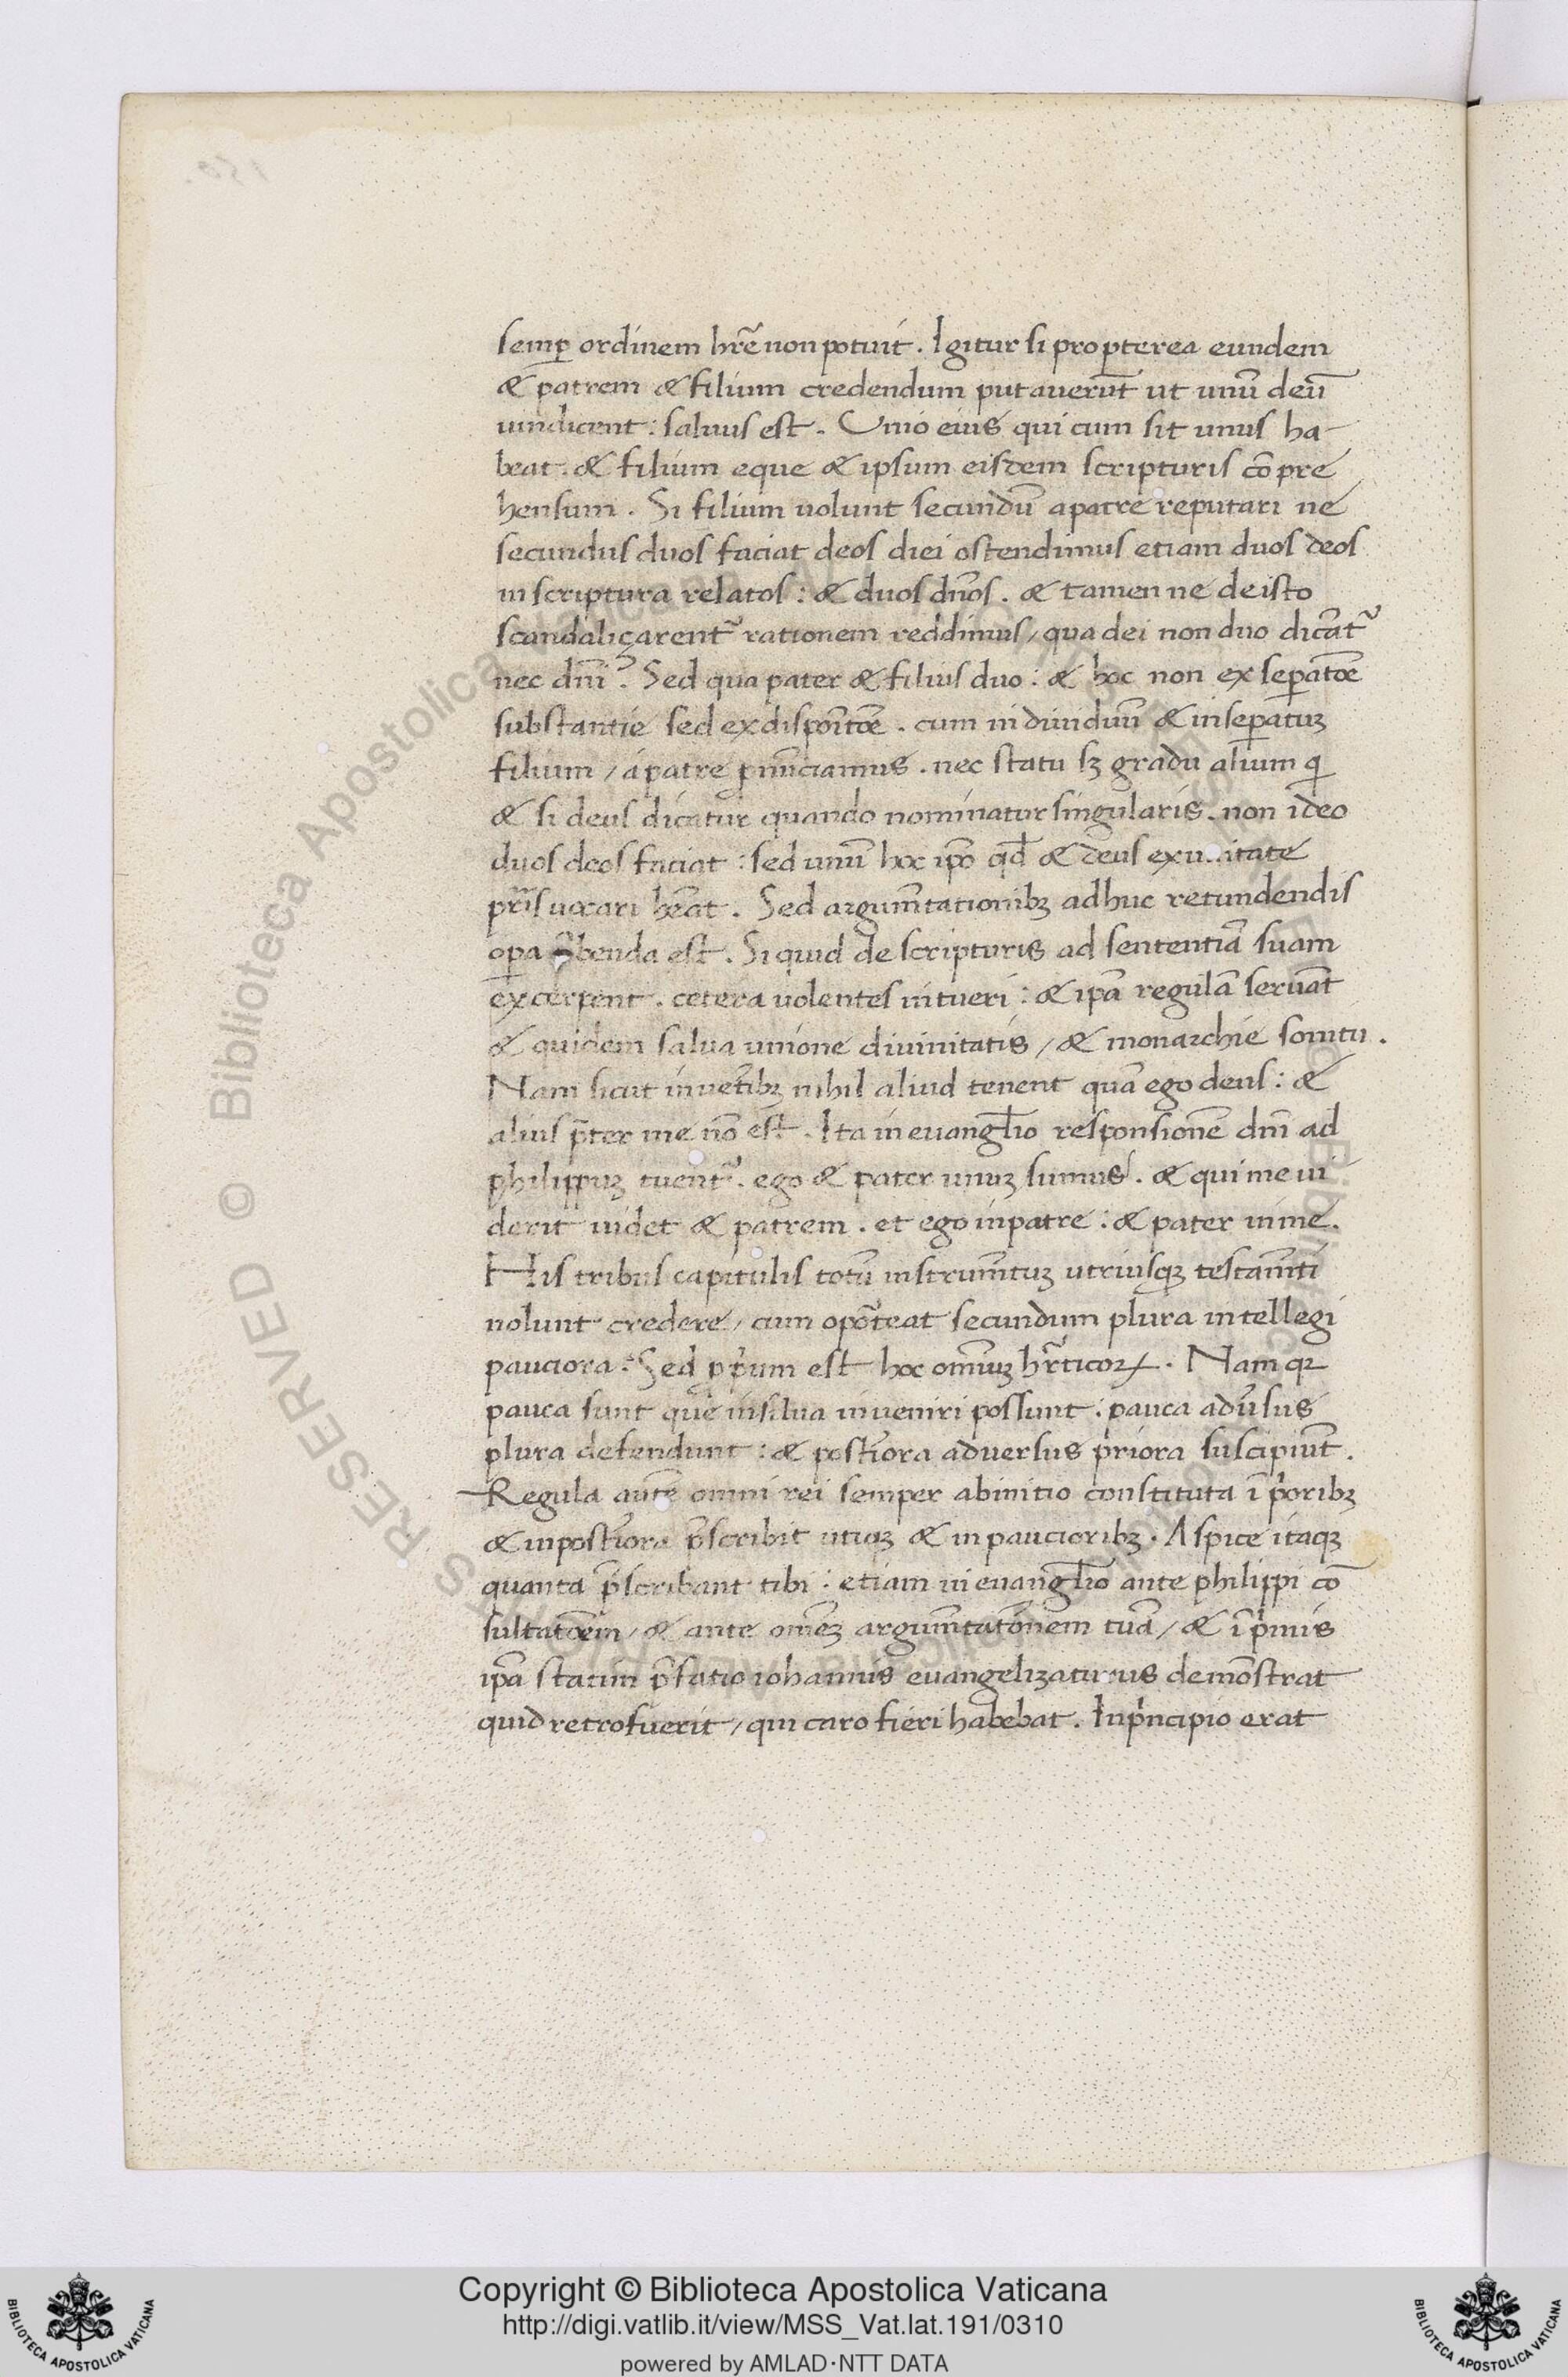 semꝑ ordinem hr̃e non potuit . Igitur si propterea eundem
& patrem & filium credendum putauerũt ut unũ deũ
uindicent : saluus est . Unio eius qui cum sit unus ha-
beat . & filium eque & ipsum eisdem scripturis cõpre
hensum . Si filium uolunt secundũ a patre reputari ne
secundus duos faciat deos diei ostendimus etiam duos deos
in scriptura relatos : & duos dños . & tamen ne de isto
scandaliçarent᷑ rationem reddimus / qua dei non duo dicãt᷑
nec dñi ? Sed qua pater & filius duo : & hoc non ex seꝑatõe
substantie sed ex dispoitõe . cum indiuiduũ & inseꝑatuꝫ
filium / a patre ꝓnũciamus . nec statu sꝫ gradu alium q̃
& si deus dicatur quando nominatur singularis . non ideo
duos deos faciat : sed unũ hoc ipõ qđ & deus ex unitate
pr̃is uocari hẽat . Sed argum̃tationibꝫ adhuc retundendis
oꝑa p̃benda est . Si quid de scripturis ad sententiã suam
excerpent . cetera uolentes intueri : & ipã regulã seruãt
& quidem salua unione diuinitatis / & monarchie sonitu .
Nam sicut in uet̃ibꝫ nihil aliud tenent quã ego deus : &
alius p̃ter me nõ est . Ita in euangl̃io responsionẽ dñi ad
philippuꝫ tuent᷑ . ego & pater unuꝫ sumus . & qui me ui
derit uidet & patrem . et ego in patre : & pater in me .
His tribus capitulis totũ instrum̃tuꝫ utriusqꝫ testam̃ti
nolunt credere / cum opõteat secundum plura intellegi
pauciora . Sed ꝓp̃um est hoc omĩuꝫ hr̃ticoꝝ . Nam qꝛ
pauca sunt que in silua inueniri possunt : pauca adũsus
plura defendunt : & post̃iora aduersus p̃riora suscipiũt .
Regula autẽ omni rei semper ab initio constituta ĩ p̃oribꝫ
& in post̃iora p̃scribit utiqꝫ & in paucioribꝫ . Aspice itaqꝫ
quanta p̃scribant tibi : etiam in euangl̃io ante philippi cõ
sultatõem / & ante omẽꝫ argum̃tatõnem tuã / & ĩ p̃mis
ipã statim p̃fatio iohannis euangelizaturus demõstrat
quid retro fuerit / qui caro fieri habebat . In p̃ncipio erat
Copyright © Biblioteca Apostolica Vaticana
http://digi.vatlib.it/view/MSS_Vat.lat.191/0310
powered by AMLAD·NTT DATA